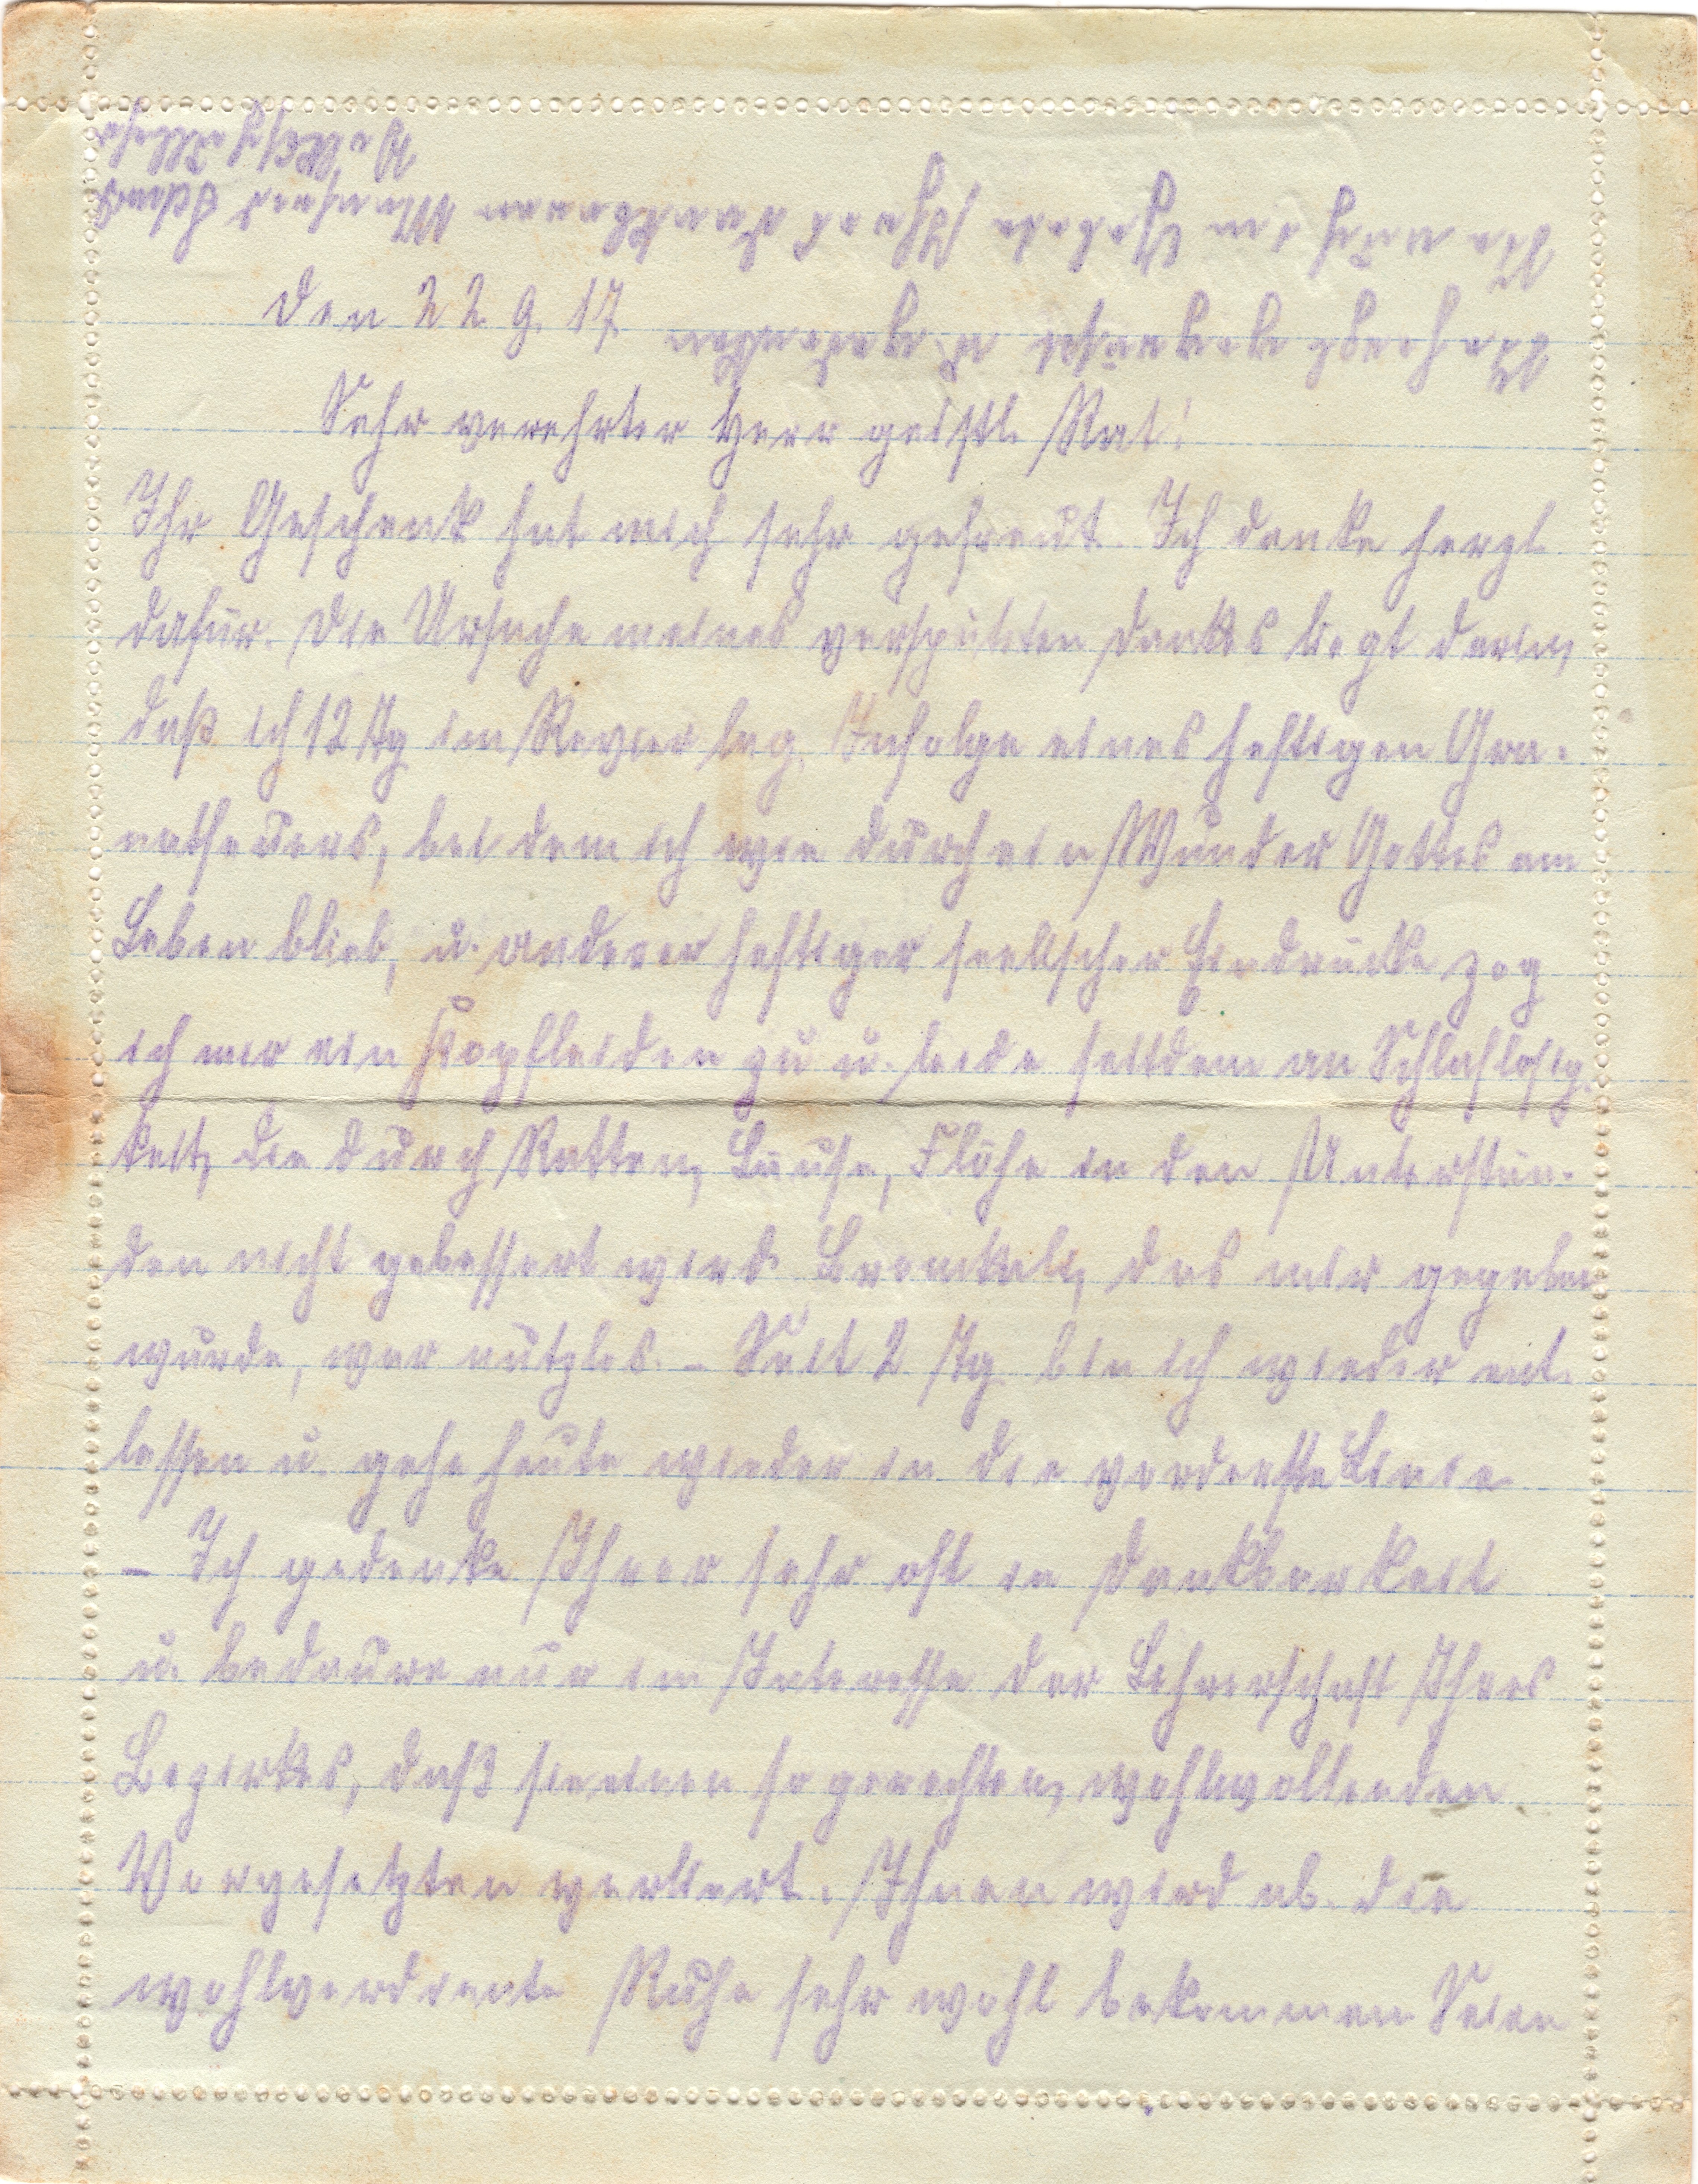 den 22. 9. 17
Sehr verehrter Herr geistl. Rat!
Ihr Geschenk hat mich sehr gefreut. Ich danke herzl.
dafür. Die Ursache meines verspäteten Dankes liegt darin,
daß ich 12 Tg im Revier lag. Infolge eines heftigen Gra-
natfeuers, bei dem ich wie durch ein Wunder Gottes am
Leben blieb, u. anderer heftiger seelischer Eindrücke zog
ich mir ein Kopfleiden zu u. leide seitdem an Schlaflosig-
keit, die durch Ratten, Läuse, Flöhe in den Unterstän-
den nicht gebessert wird. Bromkali, das mir gegeben
wurde, war nutzlos. – Seit 2 Tg bin ich wieder ent-
lassen u. gehe heute wieder in die vorderste Linie.
– Ich gedenke Ihrer sehr oft in Dankbarkeit
u. bedaure nur im Interesse der Lehrerschaft Ihres
Bezirkes, daß sie einen so gerechten, wohlwollenden
Vorgesetzten verliert. Ihnen wird ab. die
wohlverdiente Ruhe sehr wohl bekommen. Seien
Sie herzlich gegrüßt u.
Sie mich im Gebete Ihres dankbaren